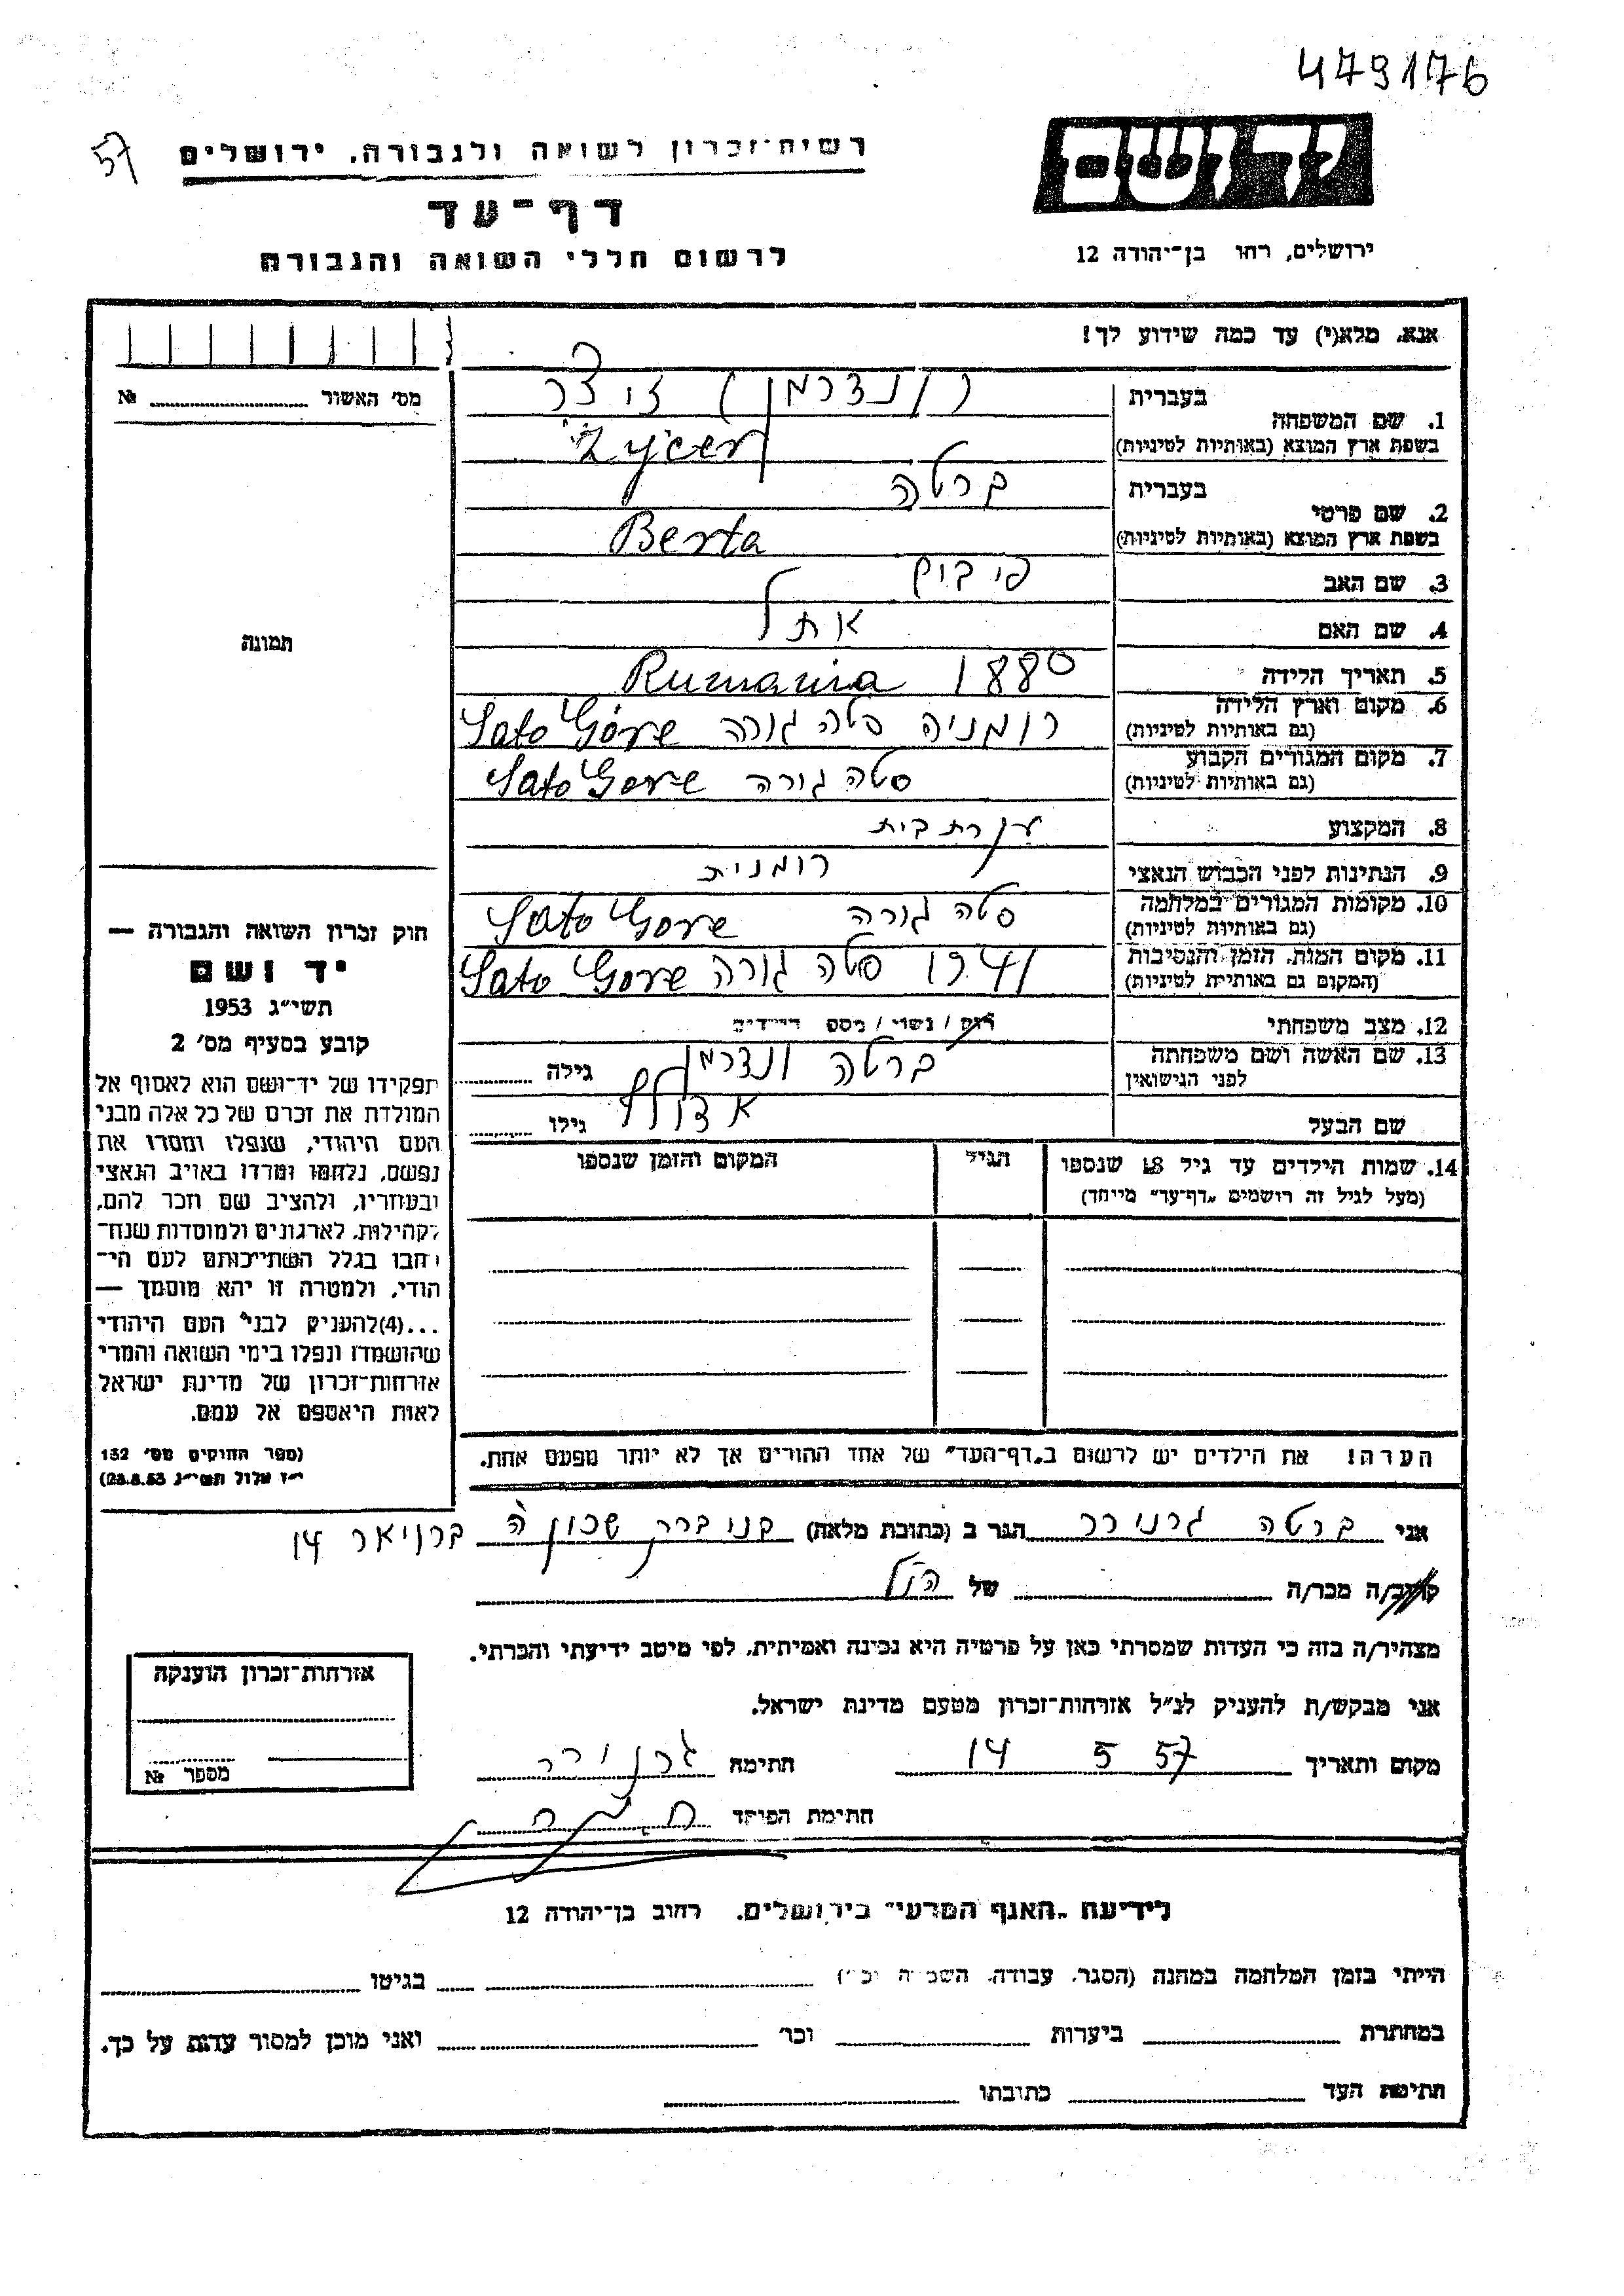 479176
57
רשות־זכרון לשואה ולגבורה, ירושלים
יד ושם
דף־עד
לרשום חללי השואה והגבורה
ירושלים, רחו בן־יהודה 12
אנא, מלא(י) עד כמה שידוע לך!
מס׳ האשור № 
1. שם המשפחה
בעברית
זיצר
בשפת ארץ המוצא (באותיות לטיניות)
Zycer
2. שם פרטי
בעברית ברטה
בשפת ארץ המוצא (באותיות לטיניות) Berta
3. שם האב
4. שם האם אתל
5. תאריך הלידה 1880 Rumania
6. מקום וארץ הלידה רומניה סטה גורה Sato Góre
(גם באותיות לטיניות)
7. מקום המגורים הקבוע סטה גורה Sato Gore
(גם באותיות לטיניות)
8. המקצוע עקרת בית
9. הנתינות לפני הכבוש הנאצי רומנית
10. מקומות המגורים במלחמה סטה גורה Sato Gore
(גם באותיות לטיניות)
11. מקום המות, הזמן והנסיבות 1941 סטה גורה Sato Gore
(המקום גם באותיות לטיניות)
12. מצב משפחתי רווק / נשוי / מספר הילדים
13. שם האשה ושם משפחתה ברטה ונדרמן גילה
לפני הנישואין
שם הבעל אדולף גילו
14. שמות הילדים עד גיל 18 שנספו
(מעל לגיל זה רושמים „דף־עד” מיוחד)
הגיל
המקום והזמן שנספו
הערה! את הילדים יש לרשום ב„דף־העד” של אחד ההורים אך לא יותר מפעם אחת.
תמונה
חוק זכרון השואה והגבורה —
יד ושם
תשי״ג 1953
קובע בסעיף מס׳ 2
תפקידו של יד־ושם הוא לאסוף אל
המולדת את זכרם של כל אלה מבני
העם היהודי, שנפלו ומסרו את
נפשם, נלחמו ומרדו באויב הנאצי
ובעוזריו, ולהציב שם וזכר להם,
לקהילות, לארגונים ולמוסדות שנח־
רבו בגלל השתייכותם לעם הי־
הודי, ולמטרה זו יהא מוסמך —
...(4)להעניק לבני העם היהודי
שהושמדו ונפלו בימי השואה והמרי
אזרחות־זכרון של מדינת ישראל
לאות היאספם אל עמם.
(ספר החוקים מס׳ 132
י״ז אלול תשי״ג 28.8.53)
אני ברטה גרנירר הגר ב (כתובת מלאה) שכון ה 14
קרוב/ה מכר/ה של הנ״ל
מצהיר/ה בזה כי העדות שמסרתי כאן על פרטיה היא נכונה ואמיתית, לפי מיטב ידיעתי והכרתי.
אני מבקש/ת להעניק לנ״ל אזרחות־זכרון מטעם מדינת ישראל.
מקום ותאריך 14 5 57 חתימה גרנירר
חתימת הפוקד
אזרחות־זכרון הוענקה
מספר №
לידיעת „האגף המדעי” בירושלים, רחוב בן־יהודה 12
הייתי בזמן המלחמה במחנה (הסגר, עבודה, השמדה וכו׳) בגיטו
במחתרת ביערות וכו׳ ואני מוכן למסור עדות על כך.
חתימת העד כתובתו